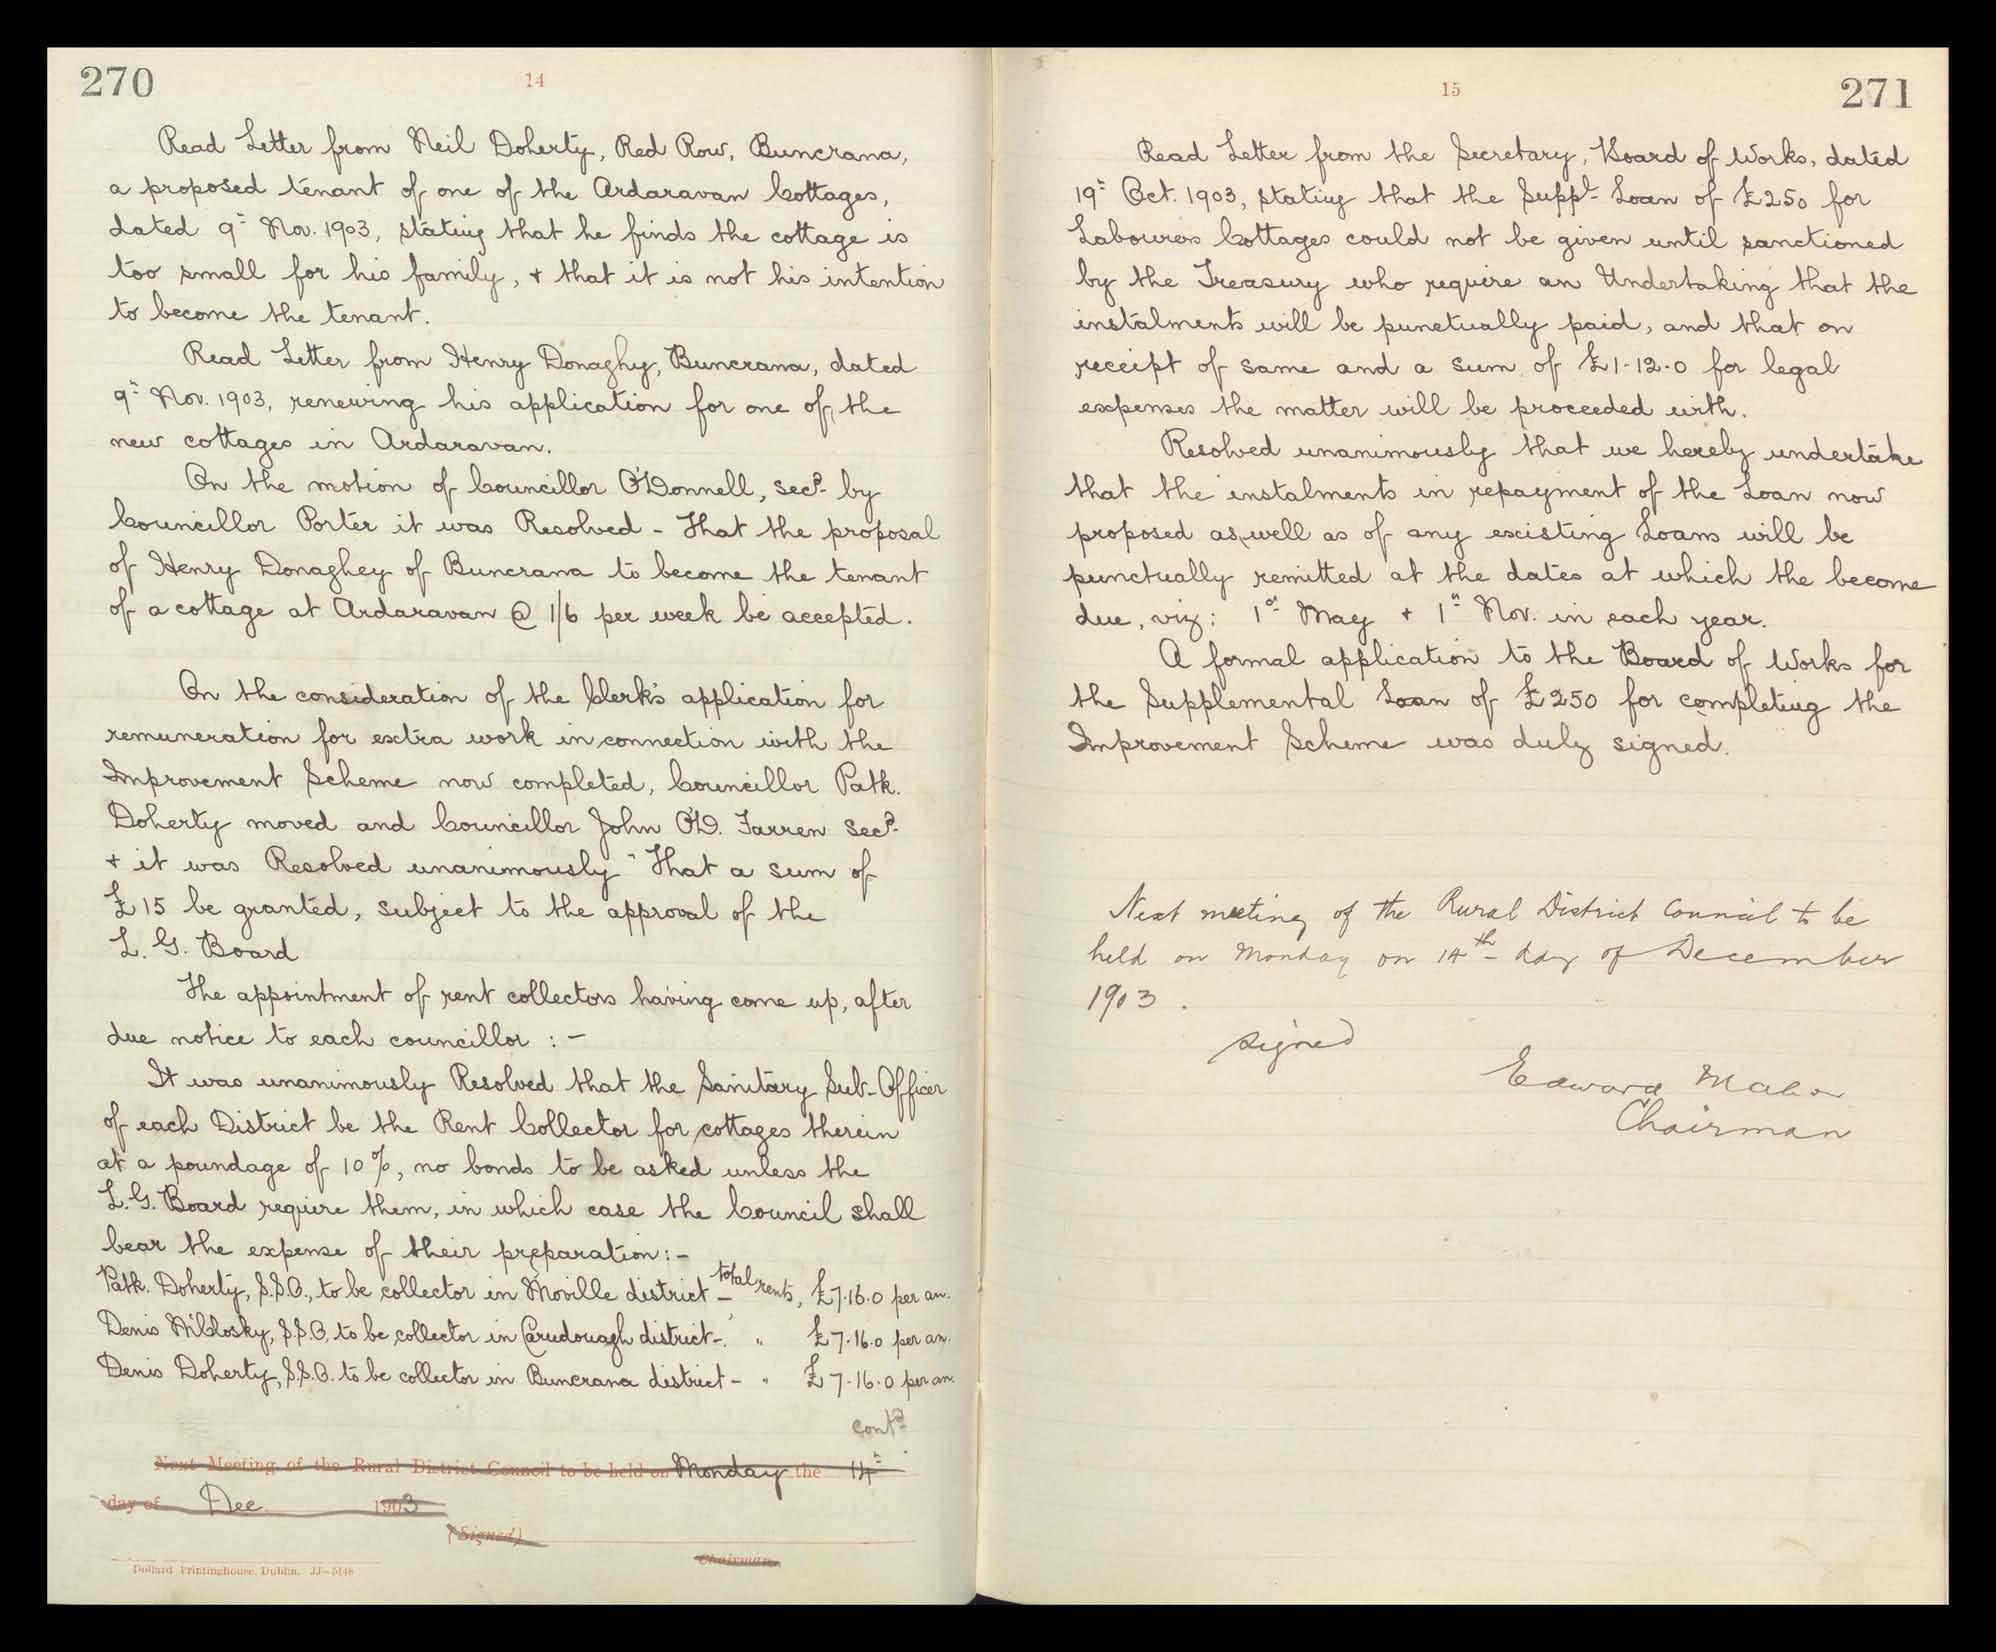 270
14
Read Letter from Neil Doherty, Red Row, Buncrana,
a proposed tenant of one of the Ardaravan Cottages,
dated 9th Nov. 1903, stating that he finds the cottage is
too small for his family, + that it is not his intention
to become the tenant.
Read Letter from Henry Donaghy, Buncrana, dated
9th Nov. 1903, renewing his application for one of the
new cottages in Ardaravan.
On the motion of Councillor O'Donnell, secd. by
Councillor Porter it was Resolved - That the proposal
of Henry Donaghey of Buncrana to become the tenant
of a cottage at Ardaravan @ 1/6 per week be accepted.
On the consideration of the Clerk's application for
remuneration for extra work in connection with the
Improvement Scheme now completed, Councillor Patk.
Doherty moved and Councillor John O'D. Farren secd.
+ it was Resolved unanimously - That a sum of
£15 be granted, subject to the approval of the
L. G. Board
The appointment of rent collectors having come up, after
due notice to each councillor : -
It was unanimously Resolved that the Sanitary Sub-Officer
of each District be the Rent Collector for cottages therein
at a poundage of 10%, no bonds to be asked unless the
L.G. Board require them, in which case the Council shall
bear the expense of their preparation:-
Patk. Doherty, S.S.O., to be collector in Moville district - total rents, £7.16.0 per an.
Denis S.S.O. to be collector in district - " £7.16.0 per an.
Denis Doherty, S.S.O. to be collector in Buncrana district - " £7.16.0 per an.
contd.
Next Meeting of the Rural District Council to be held on Monday the 14th
day of Dec. 1903
(Signed)
Chairman.
Dollard Printinghouse, Dublin. JJ-5148
15
271
Read Letter from the Secretary, Board of Works, dated
19th Oct. 1903, stating that the Suppl. Loan of £250 for
Labourers Cottages could not be given until sanctioned
by the Treasury who require an Undertaking that the
instalments will be punctually paid, and that on
receipt of same and a sum of £1-12-0 for legal
expenses the matter will be proceeded with.
Resolved unanimously that we hereby undertake
that the instalments in repayment of the Loan now
proposed as well as of any existing Loans will be
punctually remitted at the dates at which the become
due, viz: 1st May + 1st Nov. in each year.
A formal application to the Board of Works for
the Supplemental Loan of £250 for completing the
Improvement Scheme was duly signed.
Next meeting of the Rural District Council to be
held on Monday on 14th day of December
1903.
signed
Edward
Chairman